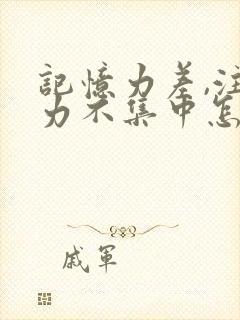 記憶力差,注
力不集中怎
戚軍